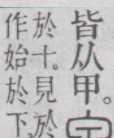 皆从甲。
於十。見於
作始於下